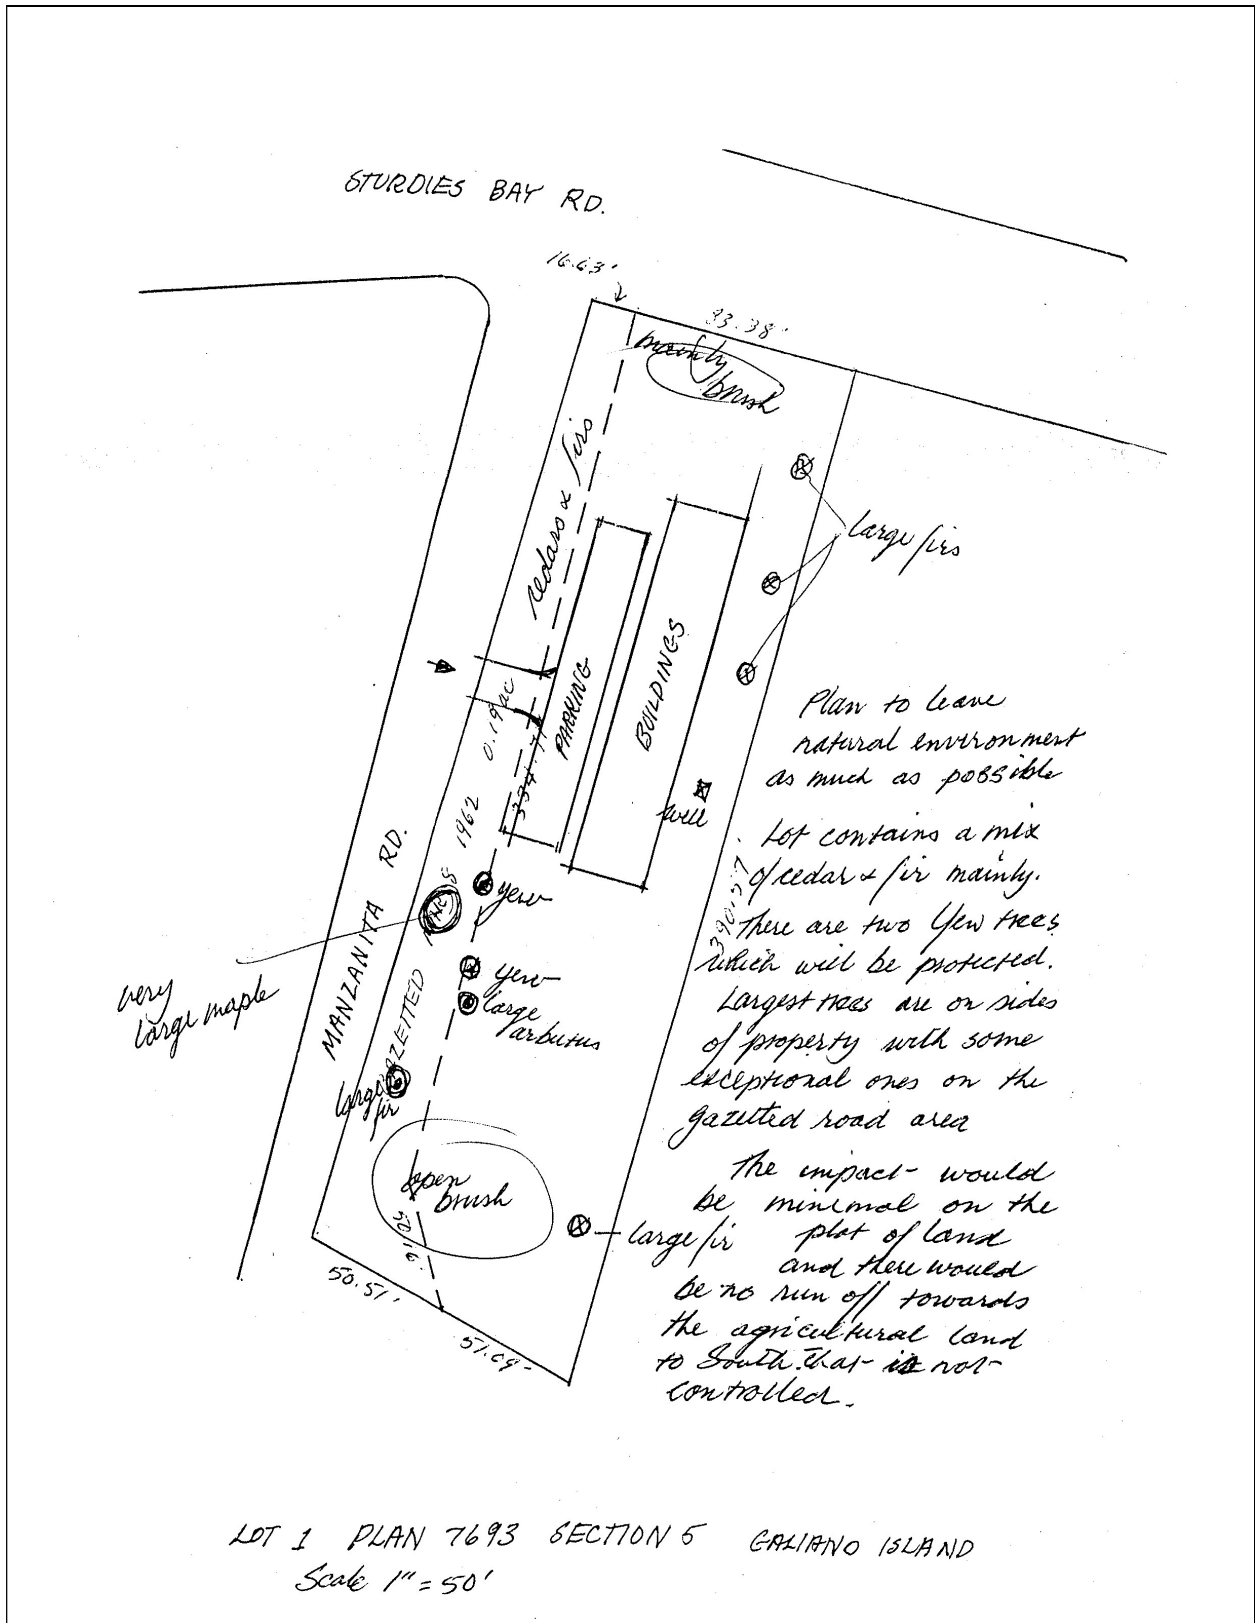 STURDIES BAY RD.
16.63'
93.38'
mainly
brush
cedars & firs
large firs
PARKING
BUILDINGS
0.19 ac
well
MANZANITA RD.
GAZETTED 1962
yew
yew
large
arbutus
very
large maple
large
fir
open
brush
50.51'
51.09'
large fir
Plan to leave
natural environment
as much as possible
Lot contains a mix
of cedar & fir mainly.
There are two Yew trees
which will be protected.
Largest trees are on sides
of property with some
exceptional ones on the
gazetted road area
The impact would
be minimal on the
plot of land
and there would
be no run off towards
the agricultural land
to South that is not
controlled.
LOT 1 PLAN 7693 SECTION 5 GALIANO ISLAND
Scale 1" = 50'